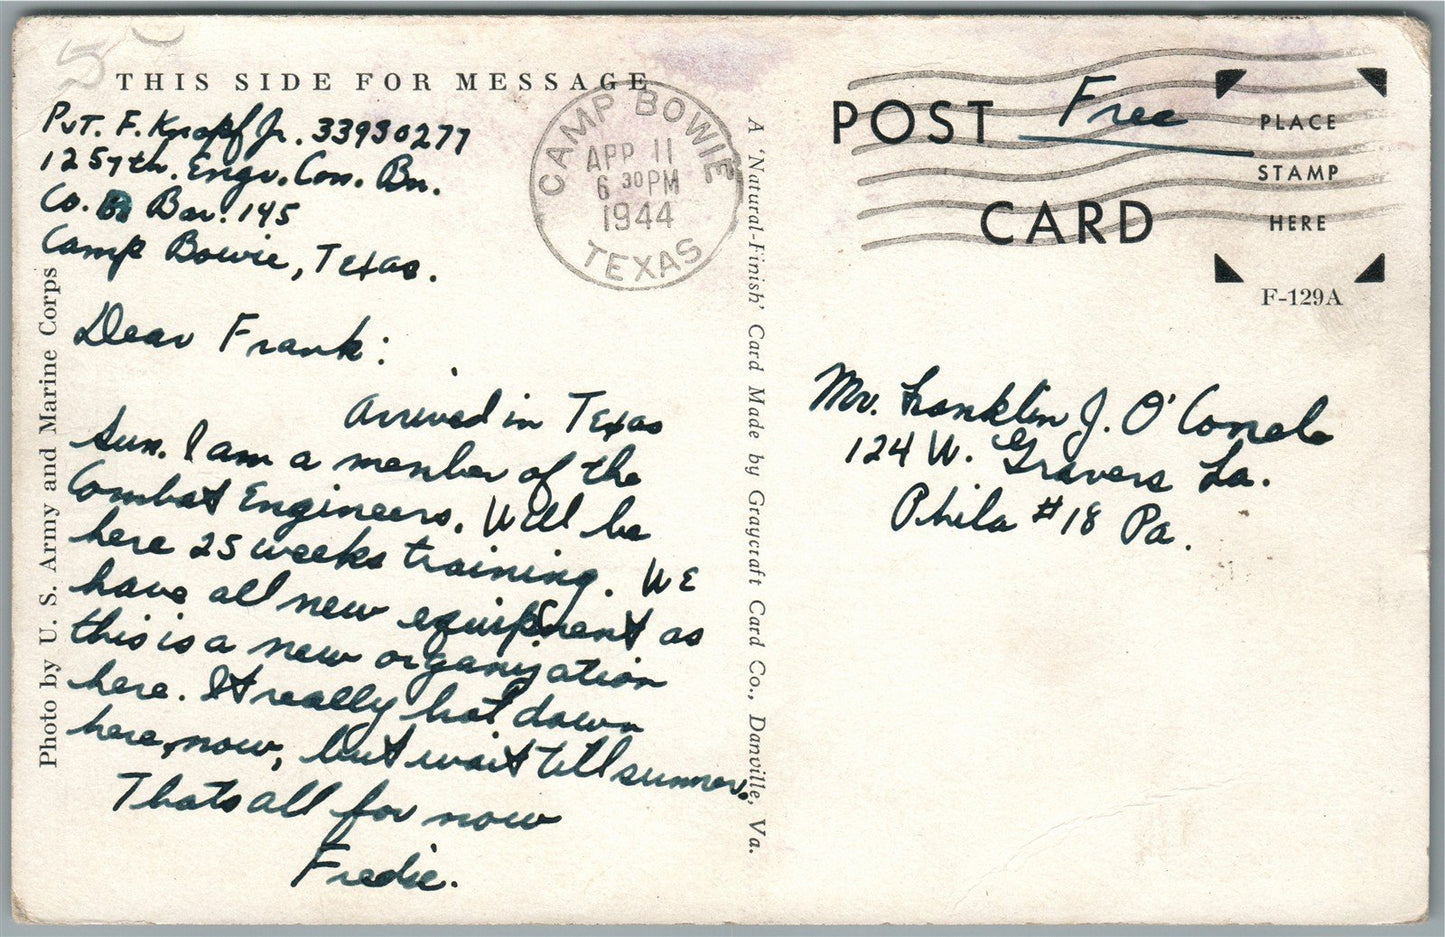 5
THIS SIDE FOR MESSAGE
Pvt. F. Knopf Jr. 33930277
1257th. Engr. Con. Bn.
Co. B Bar. 145
Camp Bowie, Texas.
Dear Frank:
Arrived in Texas
Sun. I am a member of the
Combat Engineers. Will be
here 25 weeks training. WE
have all new equipment as
this is a new organization
here. It really hot down
here, now, but wait till summer.
Thats all for now
Fredie.
Photo by U. S. Army and Marine Corps
CAMP BOWIE
APR 11
6 30 PM
1944
TEXAS
A 'Natural-Finish' Card Made by Graycraft Card Co., Danville, Va.
POST CARD
Free
PLACE
STAMP
HERE
F-129A
Mr. Franklin J. O'Conel
124 W. Gravers La.
Phila #18 Pa.